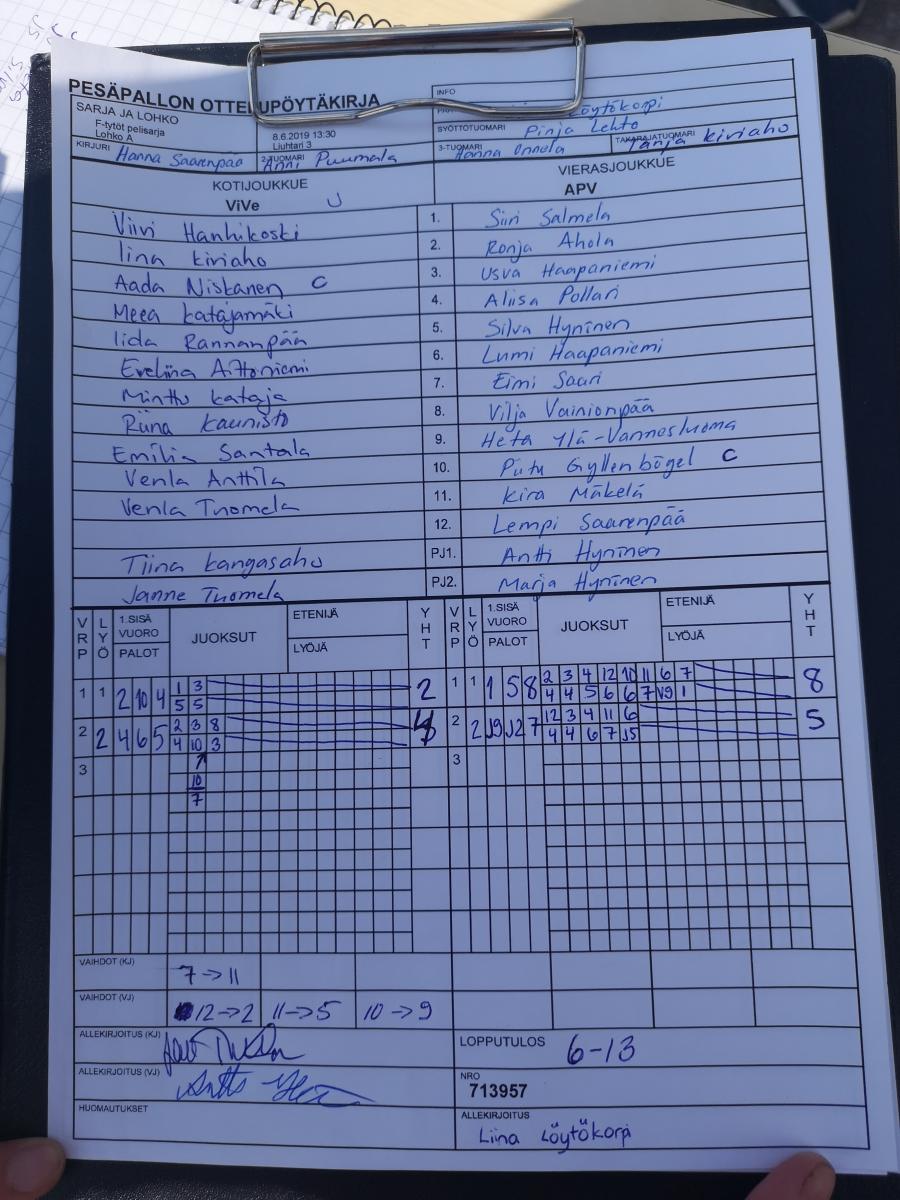 PESÄPALLON OTTELUPÖYTÄKIRJA
INFO
SARJA JA LOHKO
F-tytöt pelisarja
Lohko A
8.6.2019 13:30
Liuhtari 3
Löytökorpi
SYÖTTÖTUOMARI Pinja Lehto
KIRJURI Hanna Saarenpää
2-TUOMARI Anni Puumala
3-TUOMARI Hanna Onnela
TAKARAJATUOMARI Tanja Kiriaho
KOTIJOUKKUE
ViVe U
VIERASJOUKKUE
APV
Viivi Hanhikoski 1. Siiri Salmela
Iina Kiriaho 2. Ronja Ahola
Aada Niskanen C 3. Usva Haapaniemi
Meea Katajamäki 4. Aliisa Pollari
Iida Rannanpää 5. Silva Hyninen
Eveliina Aittoniemi 6. Lumi Haapaniemi
Minttu Kataja 7. Eimi Saari
Riina Kaunisto 8. Vilja Vainionpää
Emilia Santala 9. Heta Ylä-Vannesluoma
Venla Anttila 10. Piitu Gyllenbögel C
Venla Tuomela 11. Kira Mäkelä
12. Lempi Saarenpää
Tiina Kangasaho PJ1. Antti Hyninen
Janne Tuomela PJ2. Marja Hyninen
VRP LYÖ 1.SISÄ VUORO PALOT JUOKSUT ETENIJÄ LYÖJÄ YHT VRP LYÖ 1.SISÄ VUORO PALOT JUOKSUT ETENIJÄ LYÖJÄ YHT
1 3 2 3 4 12 10 11 6 7
1 1 2 10 4 2 1 1 1 5 8 8
5 5 4 4 5 6 6 7 V9 1
2 3 8 12 3 4 11 6
2 2 4 6 5 2 2 J9 J2 7 5
4 10 3 4 4 6 7 J5
3 3
10
7
VAIHDOT (KJ) 7→11
VAIHDOT (VJ) 12→2 11→5 10→9
ALLEKIRJOITUS (KJ)
LOPPUTULOS 6-13
ALLEKIRJOITUS (VJ)
NRO
713957
HUOMAUTUKSET
ALLEKIRJOITUS
Liina Löytökorpi